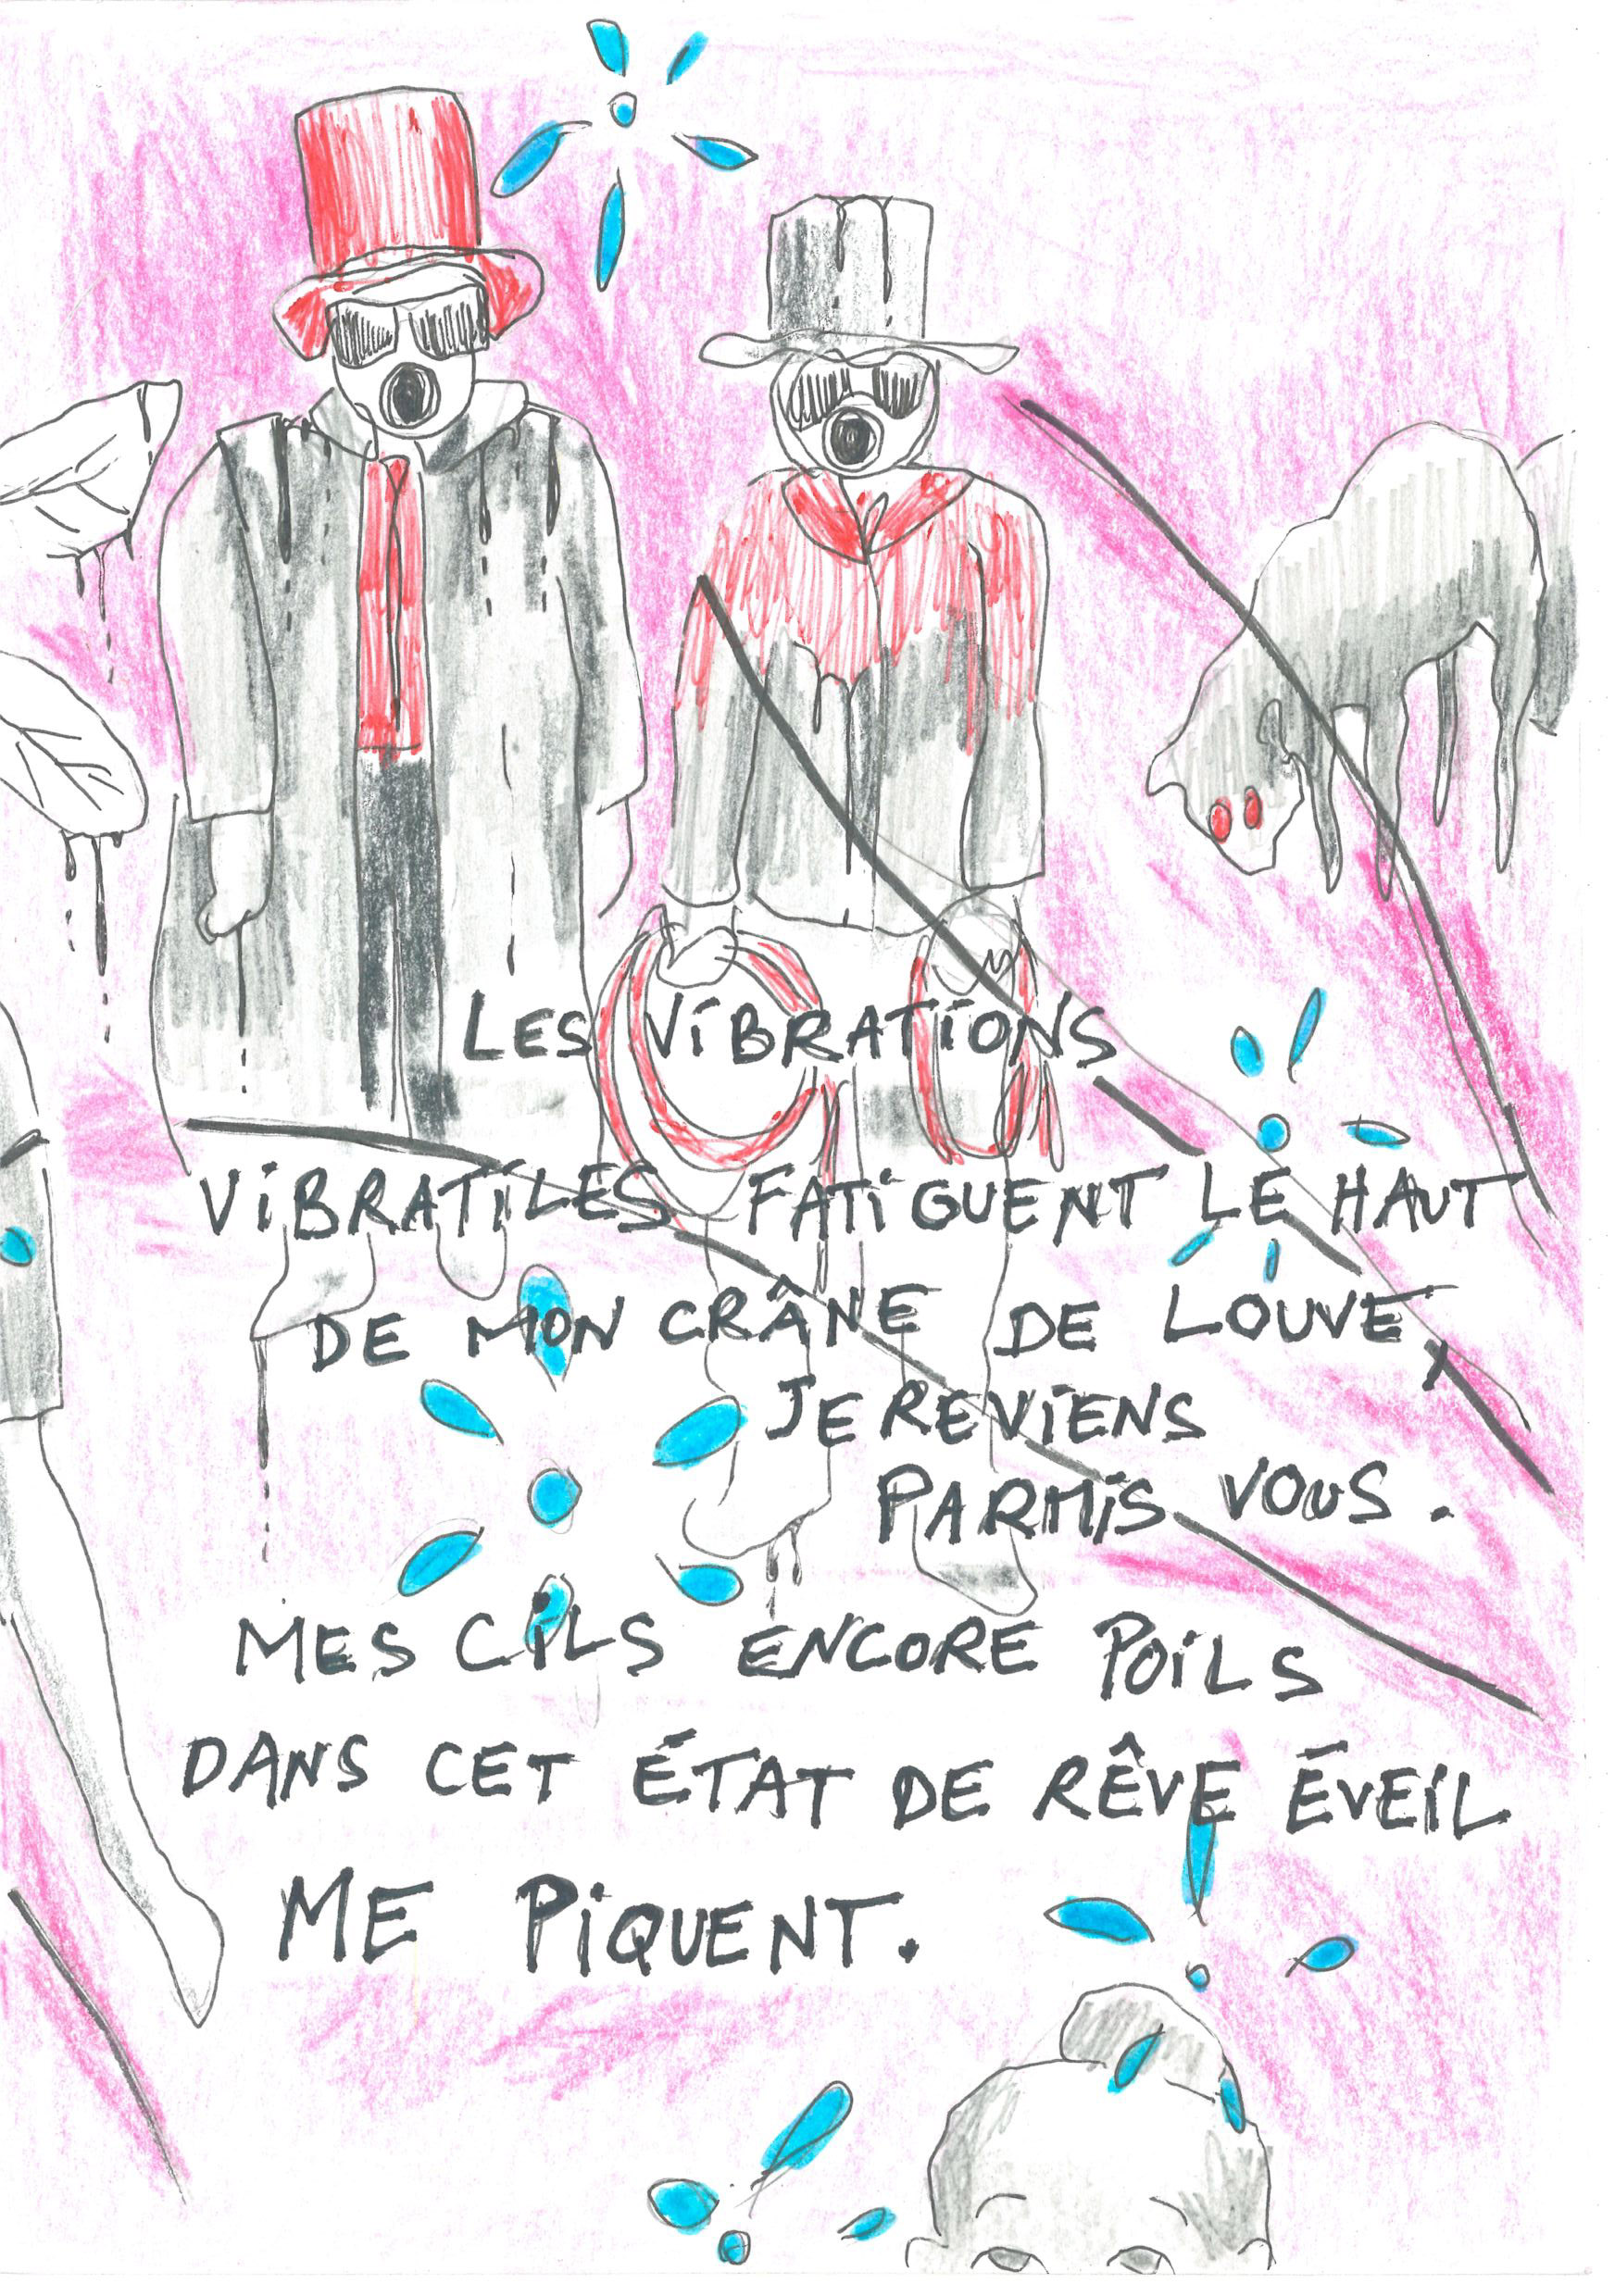 LES ViBRATiONS
ViBRATiLES FATiGUENT LE HAUT
DE MON CRÂNE DE LOUVE,
JE REViENS
PARMiS VOUS.
MES CiLS ENCORE POiLS
DANS CET ÉTAT DE RÊVE ÉVEiL
ME PiQUENT.